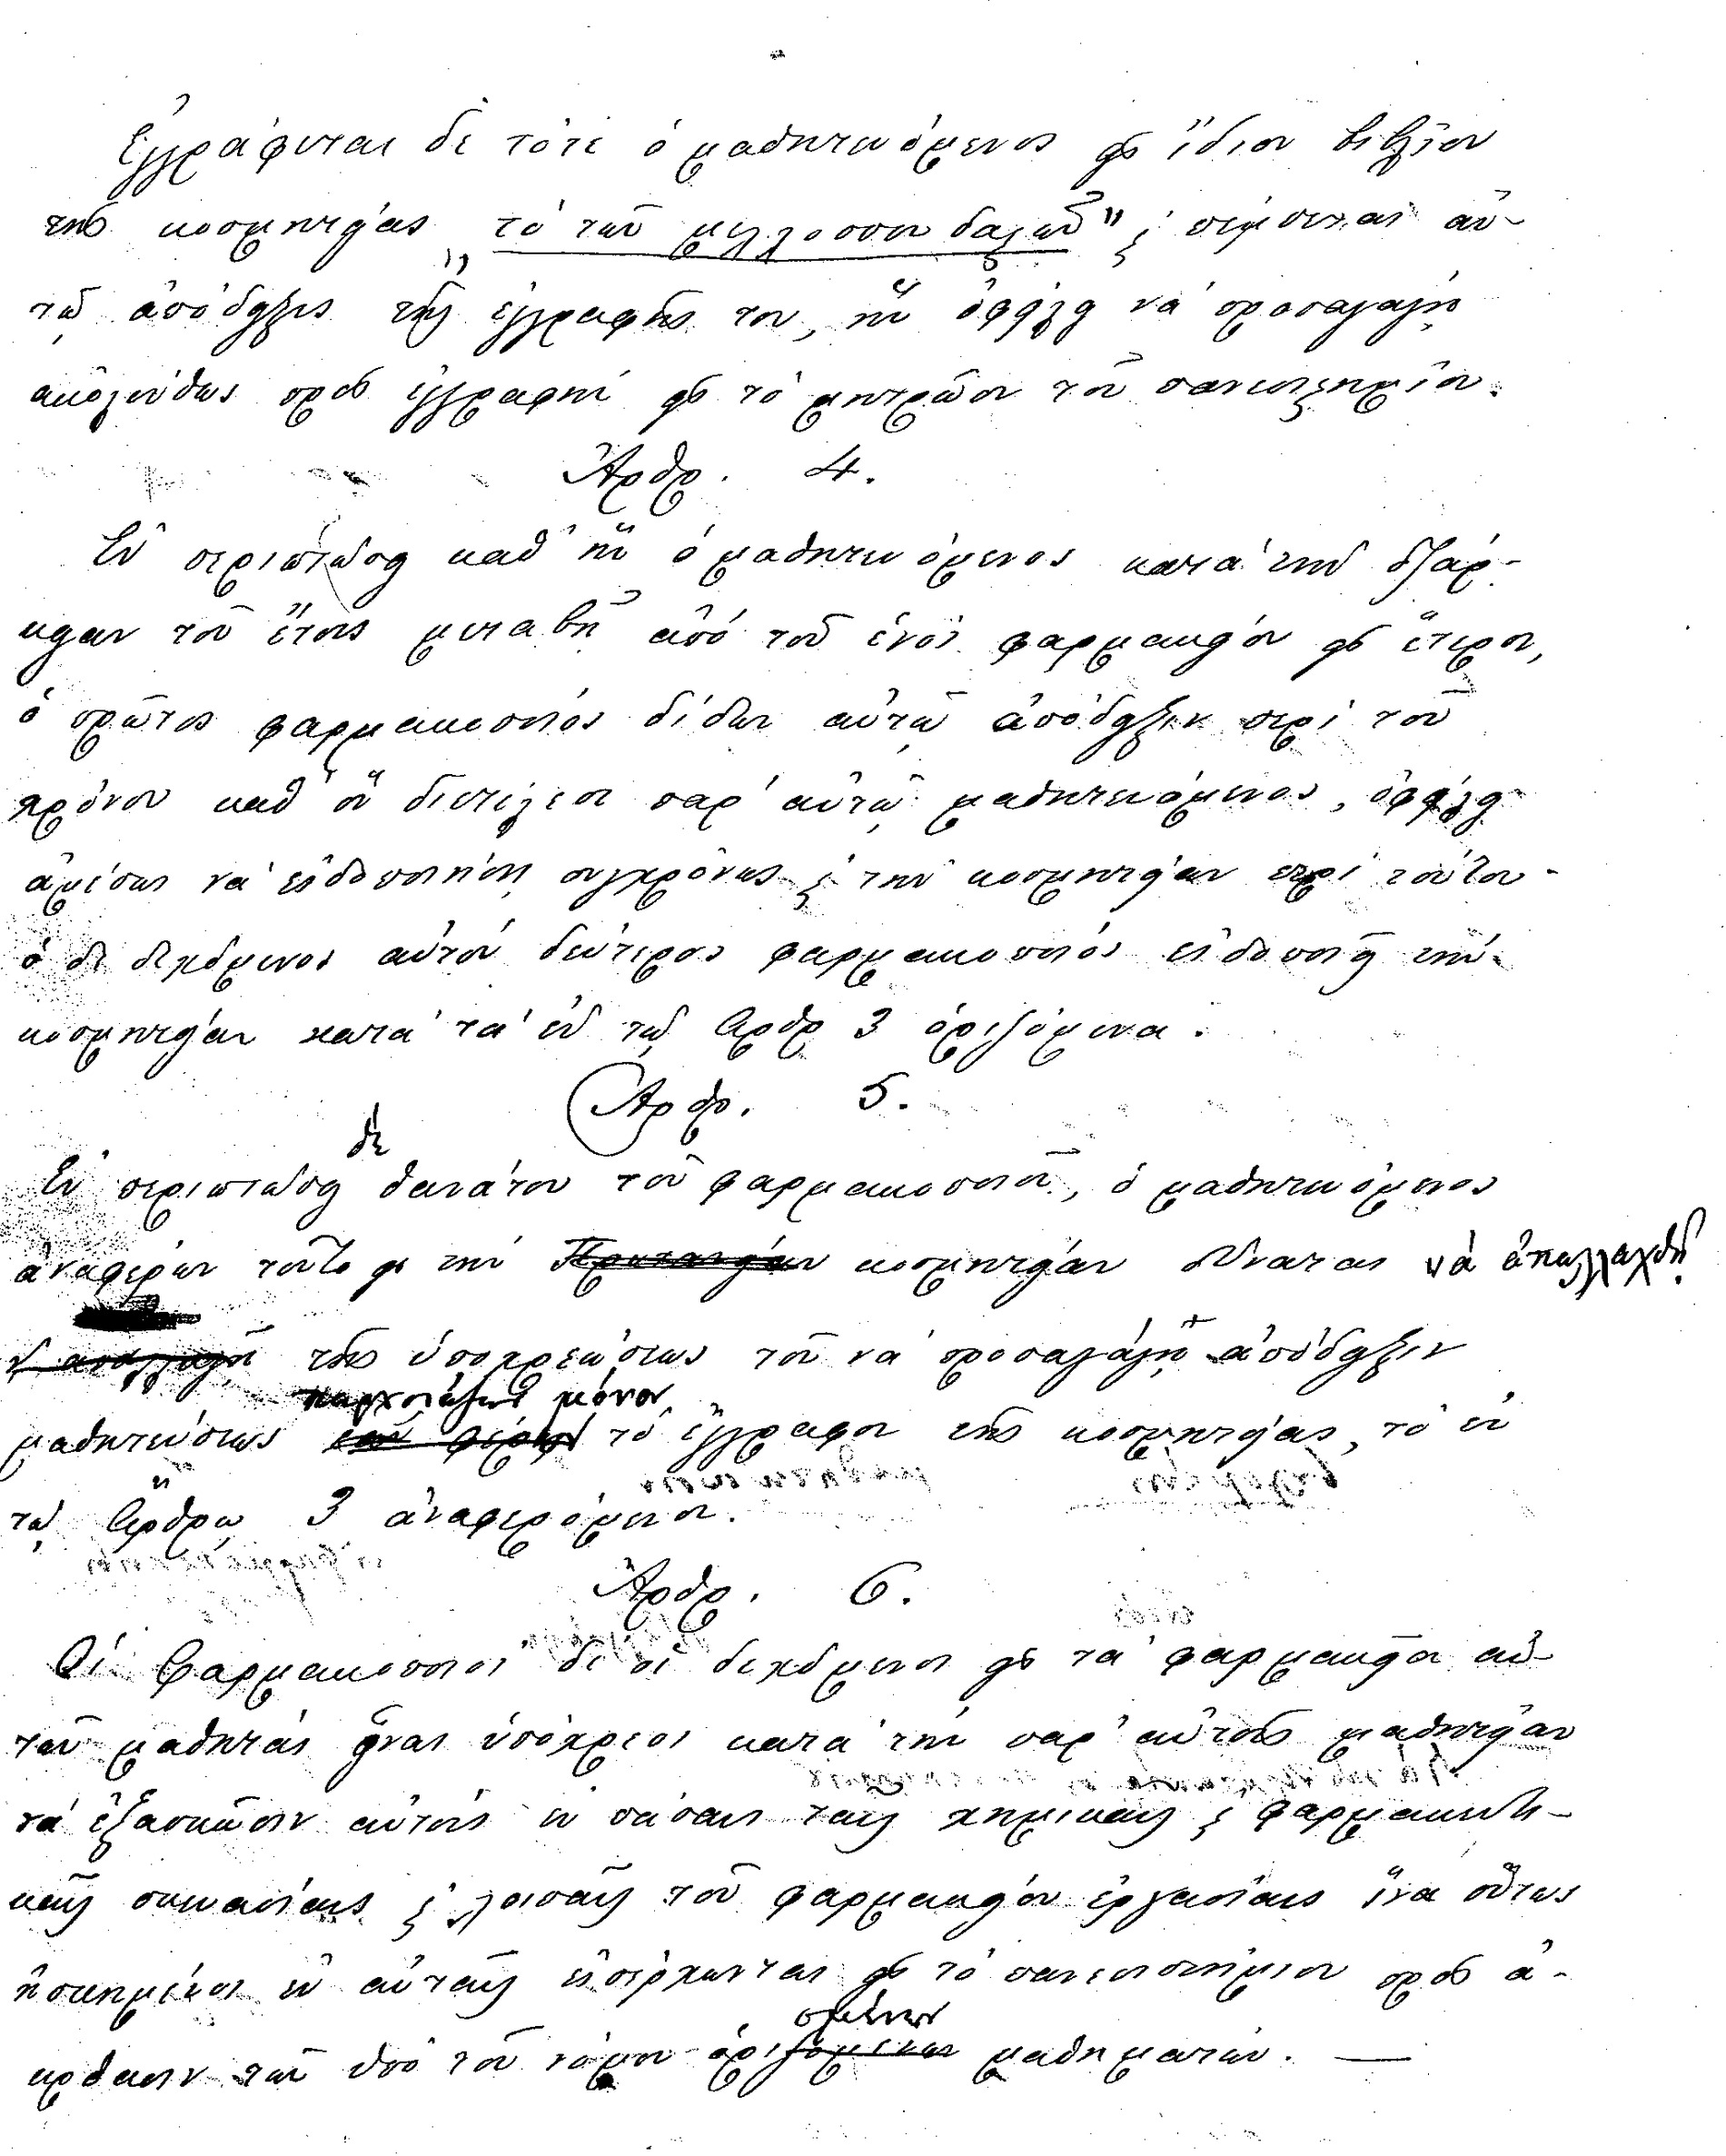 Ἐγγράφεται δὲ τότε ὁ μαθητευόμενος εἰς ἴδιον βιβλίον
τῆς κοσμητείας „τὸ τῶν μελλοσπουδαζόν" ϗ πέμπεται αὐ-
τῷ ἀπόδειξις τῆς ἐγγραφῆς του, ἣν ὀφείλει νὰ προσαγάγῃ
ἀκολούθως πρὸς ἐγγραφὴν εἰς τὸ μητρῷον τοῦ πανεπιστημίου.
Ἄρθρ. 4.
Ἐν περιπτώσει καθ' ἣν ὁ μαθητευόμενος κατὰ τὴν διάρ-
κειαν τοῦ ἔτους μεταβῇ ἀπὸ τοῦ ἑνὸς φαρμακείου εἰς ἕτερον,
ὁ πρῶτος φαρμακοποιὸς δίδων αὐτῷ ἀπόδειξιν περὶ τοῦ
χρόνου καθ' ὃν διετέλεσε παρ' αὐτῷ μαθητευόμενος, ὀφείλει
ἀμέσως νὰ εἰδοποιήσῃ συγχρόνως ϗ τὴν κοσμητείαν περὶ τούτου
ὁ δὲ δεχόμενος αὐτὸν δεύτερος φαρμακοποιὸς εἰδοποιεῖ τὴν
κοσμητείαν κατὰ τὰ ἐν τῷ Ἄρθρ 3 ὁριζόμενα.
Ἄρθρ. 5.
δὲ
Ἐν περιπτώσει θανάτου τοῦ φαρμακοποιοῦ, ὁ μαθητευόμενος
ἀναφέρων τοῦτο εἰς τὴν Πρυτανείαν κοσμητείαν δύναται νὰ ἀπαλλαχθῇ
τῆς ὑποχρεώσεως τοῦ νὰ προσαγάγῃ ἀπόδειξιν
μόνον
μαθητεύσεως τὸ ἔγγραφον τῆς κοσμητείας, τὸ ἐν
τῷ Ἄρθρῳ 3 ἀναφερόμενον.
Ἄρθρ. 6.
Οἱ Φαρμακοποιοὶ δὲ οἱ δεχόμενοι εἰς τὰ φαρμακεῖα αὐ-
τῶν μαθητὰς εἶναι ὑπόχρεοι κατὰ τὴν παρ' αὐτοῖς μαθητείαν
νὰ ἐξασκῶσιν αὐτοὺς ἐν πάσαις ταῖς χημικαῖς ϗ φαρμακευτι-
καῖς σκευασίαις ϗ λοιπαῖς τοῦ φαρμακείου ἐργασίαις ἵνα οὕτως
ἠσκημένοι ἐν αὐταῖς εἰσέρχωνται εἰς τὸ πανεπιστήμιον πρὸς ἀ-
σμένων
κρόασιν τῶν ὑπὸ τοῦ νόμου ὁριζομένων μαθημάτων. —